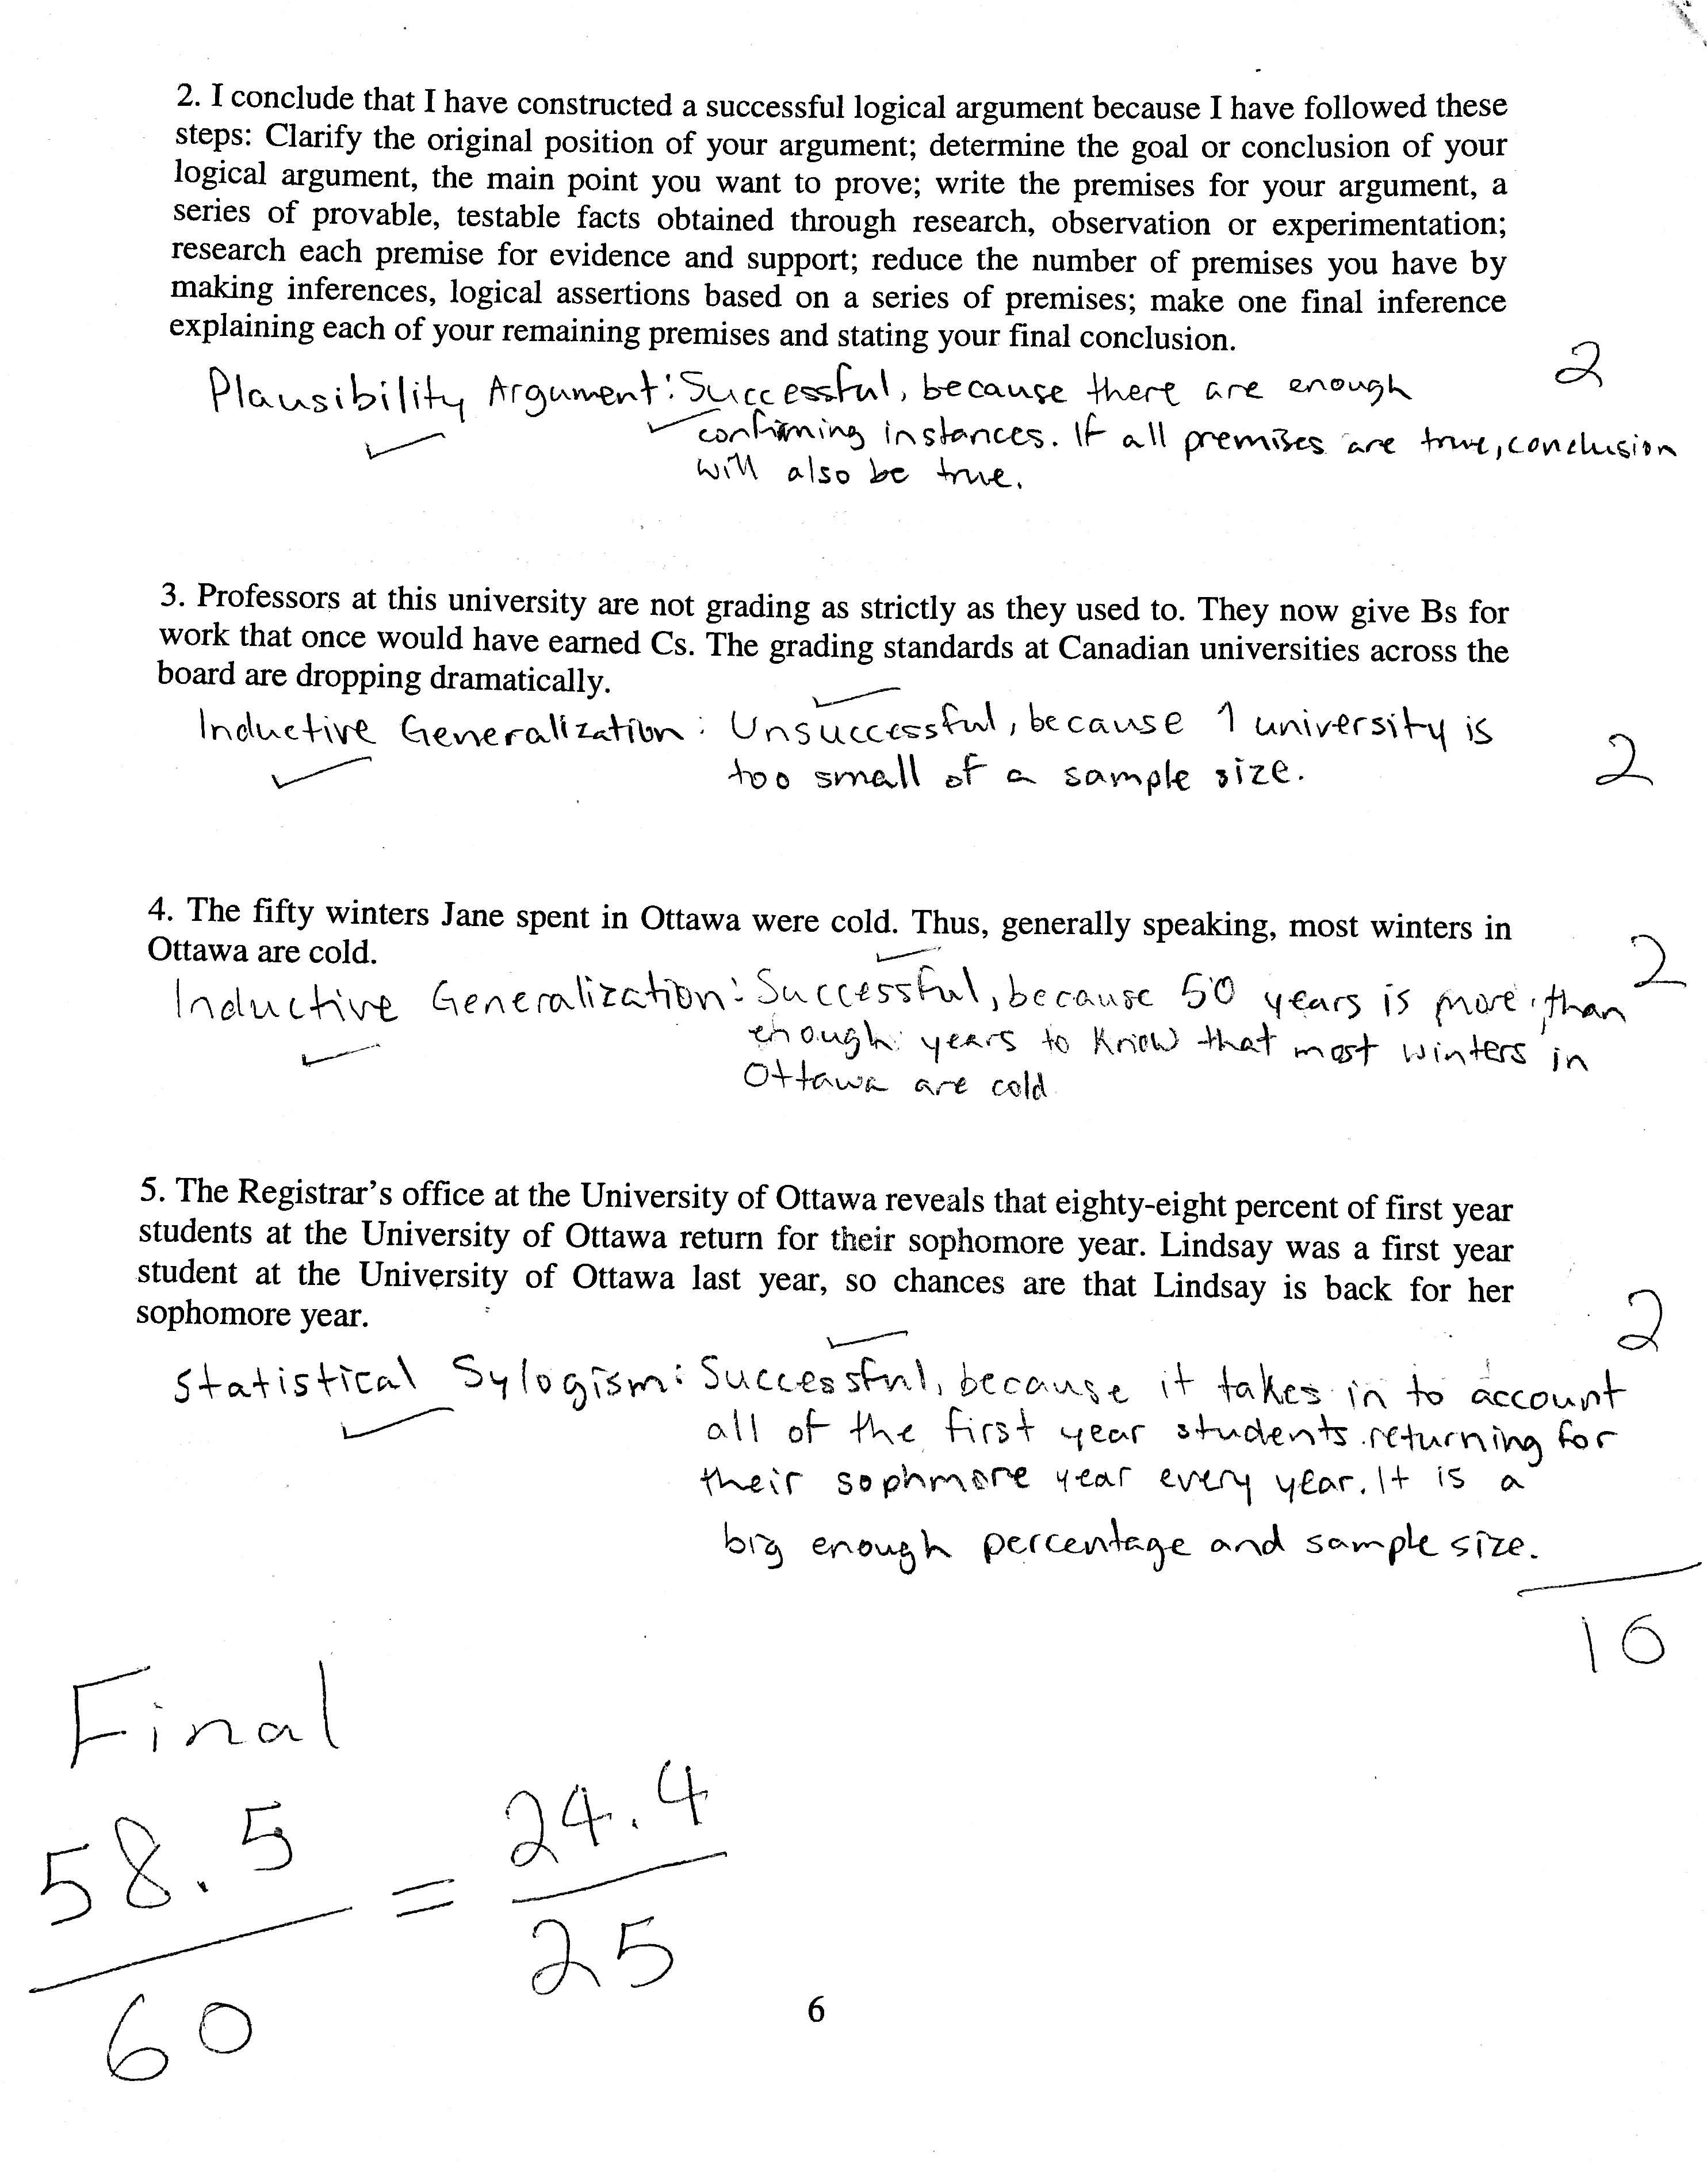 2. I conclude that I have constructed a successful logical argument because I have followed these
steps: Clarify the original position of your argument; determine the goal or conclusion of your
logical argument, the main point you want to prove; write the premises for your argument, a
series of provable, testable facts obtained through research, observation or experimentation;
research each premise for evidence and support; reduce the number of premises you have by
making inferences, logical assertions based on a series of premises; make one final inference
explaining each of your remaining premises and stating your final conclusion.
2
Plausibility Argument: Successful, because there are enough
confirming instances. If all premises are true, conclusion
will also be true.
3. Professors at this university are not grading as strictly as they used to. They now give Bs for
work that once would have earned Cs. The grading standards at Canadian universities across the
board are dropping dramatically.
Inductive Generalization: Unsuccessful, because 1 university is
too small of a sample size.
2
4. The fifty winters Jane spent in Ottawa were cold. Thus, generally speaking, most winters in
Ottawa are cold.
2
Inductive Generalization: Successful, because 50 years is more than
enough years to know that most winters in
Ottawa are cold
5. The Registrar's office at the University of Ottawa reveals that eighty-eight percent of first year
students at the University of Ottawa return for their sophomore year. Lindsay was a first year
student at the University of Ottawa last year, so chances are that Lindsay is back for her
sophomore year.
2
Statistical Sylogism: Successful, because it takes in to account
all of the first year students returning for
their sophmore year every year. It is a
big enough percentage and sample size.
10
Final
58.5 = 24.4
60 25
6